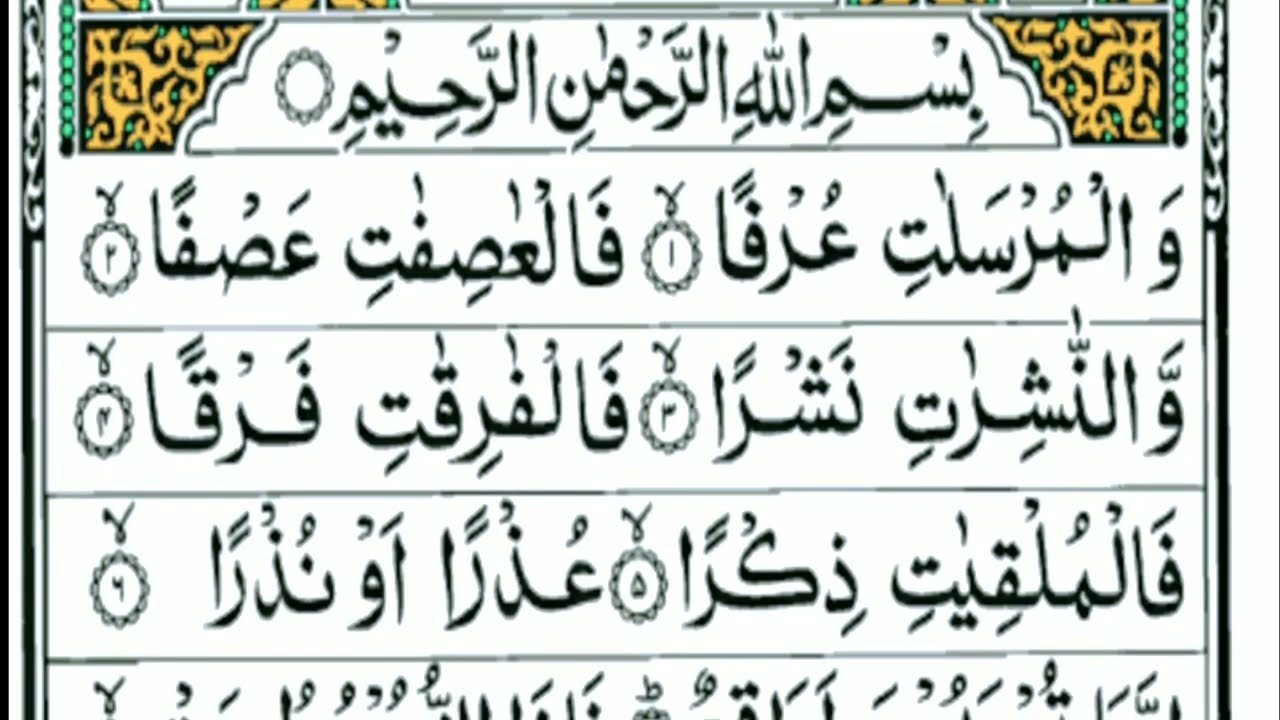 بِسْمِ اللّٰهِ الرَّحْمٰنِ الرَّحِيْمِ
وَ الْمُرْسَلٰتِ عُرْفًا ۙ﴿۱﴾ فَالْعٰصِفٰتِ عَصْفًا ۙ﴿۲﴾
وَّ النّٰشِرٰتِ نَشْرًا ۙ﴿۳﴾ فَالْفٰرِقٰتِ فَرْقًا ۙ﴿۴﴾
فَالْمُلْقِيٰتِ ذِكْرًا ۙ﴿۵﴾ عُذْرًا اَوْ نُذْرًا ۙ﴿۶﴾